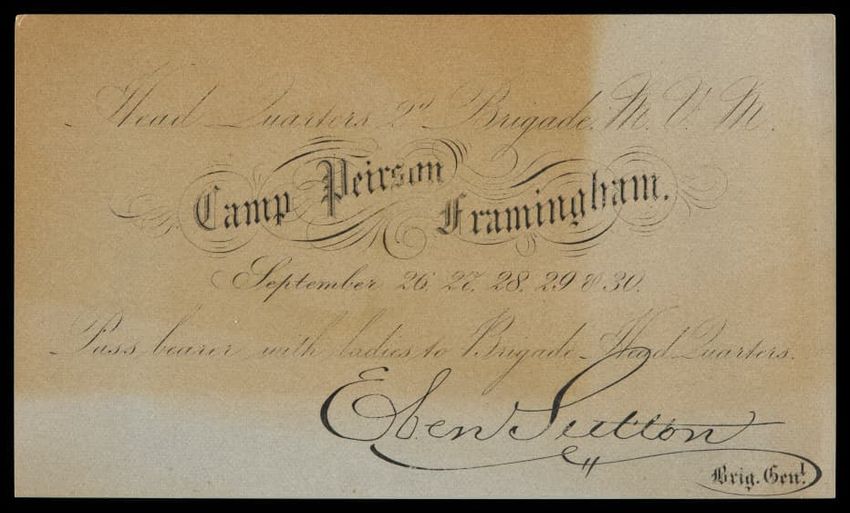 Head Quarters 2d Brigade. M. V. M.
Camp Peirson Framingham.
September 26, 27, 28, 29 & 30.
Pass bearer with ladies to Brigade Head Quarters.
Eben Sutton
Brig. Genl.